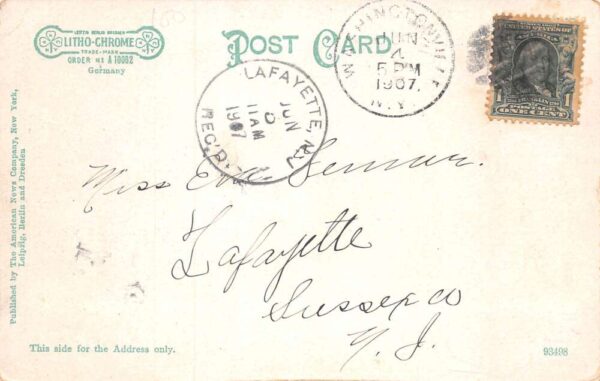 LEIPZIG BERLIN DRESDEN
LITHO-CHROME
TRADE-MARK
ORDER NO A 10082
Germany
POST CARD
WASHINGTONVILLE
JUN
5 PM
1907.
N.Y.
UNITED STATES OF AMERICA
1 ONE CENT 1
LAFAYETTE, N.J.
JUN
11 AM
1907
REC'D.
Miss Eva
Lafayette
Sussex co
N. J.
Published by The American News Company, New York,
Leipzig, Berlin and Dresden
This side for the Address only.
93498